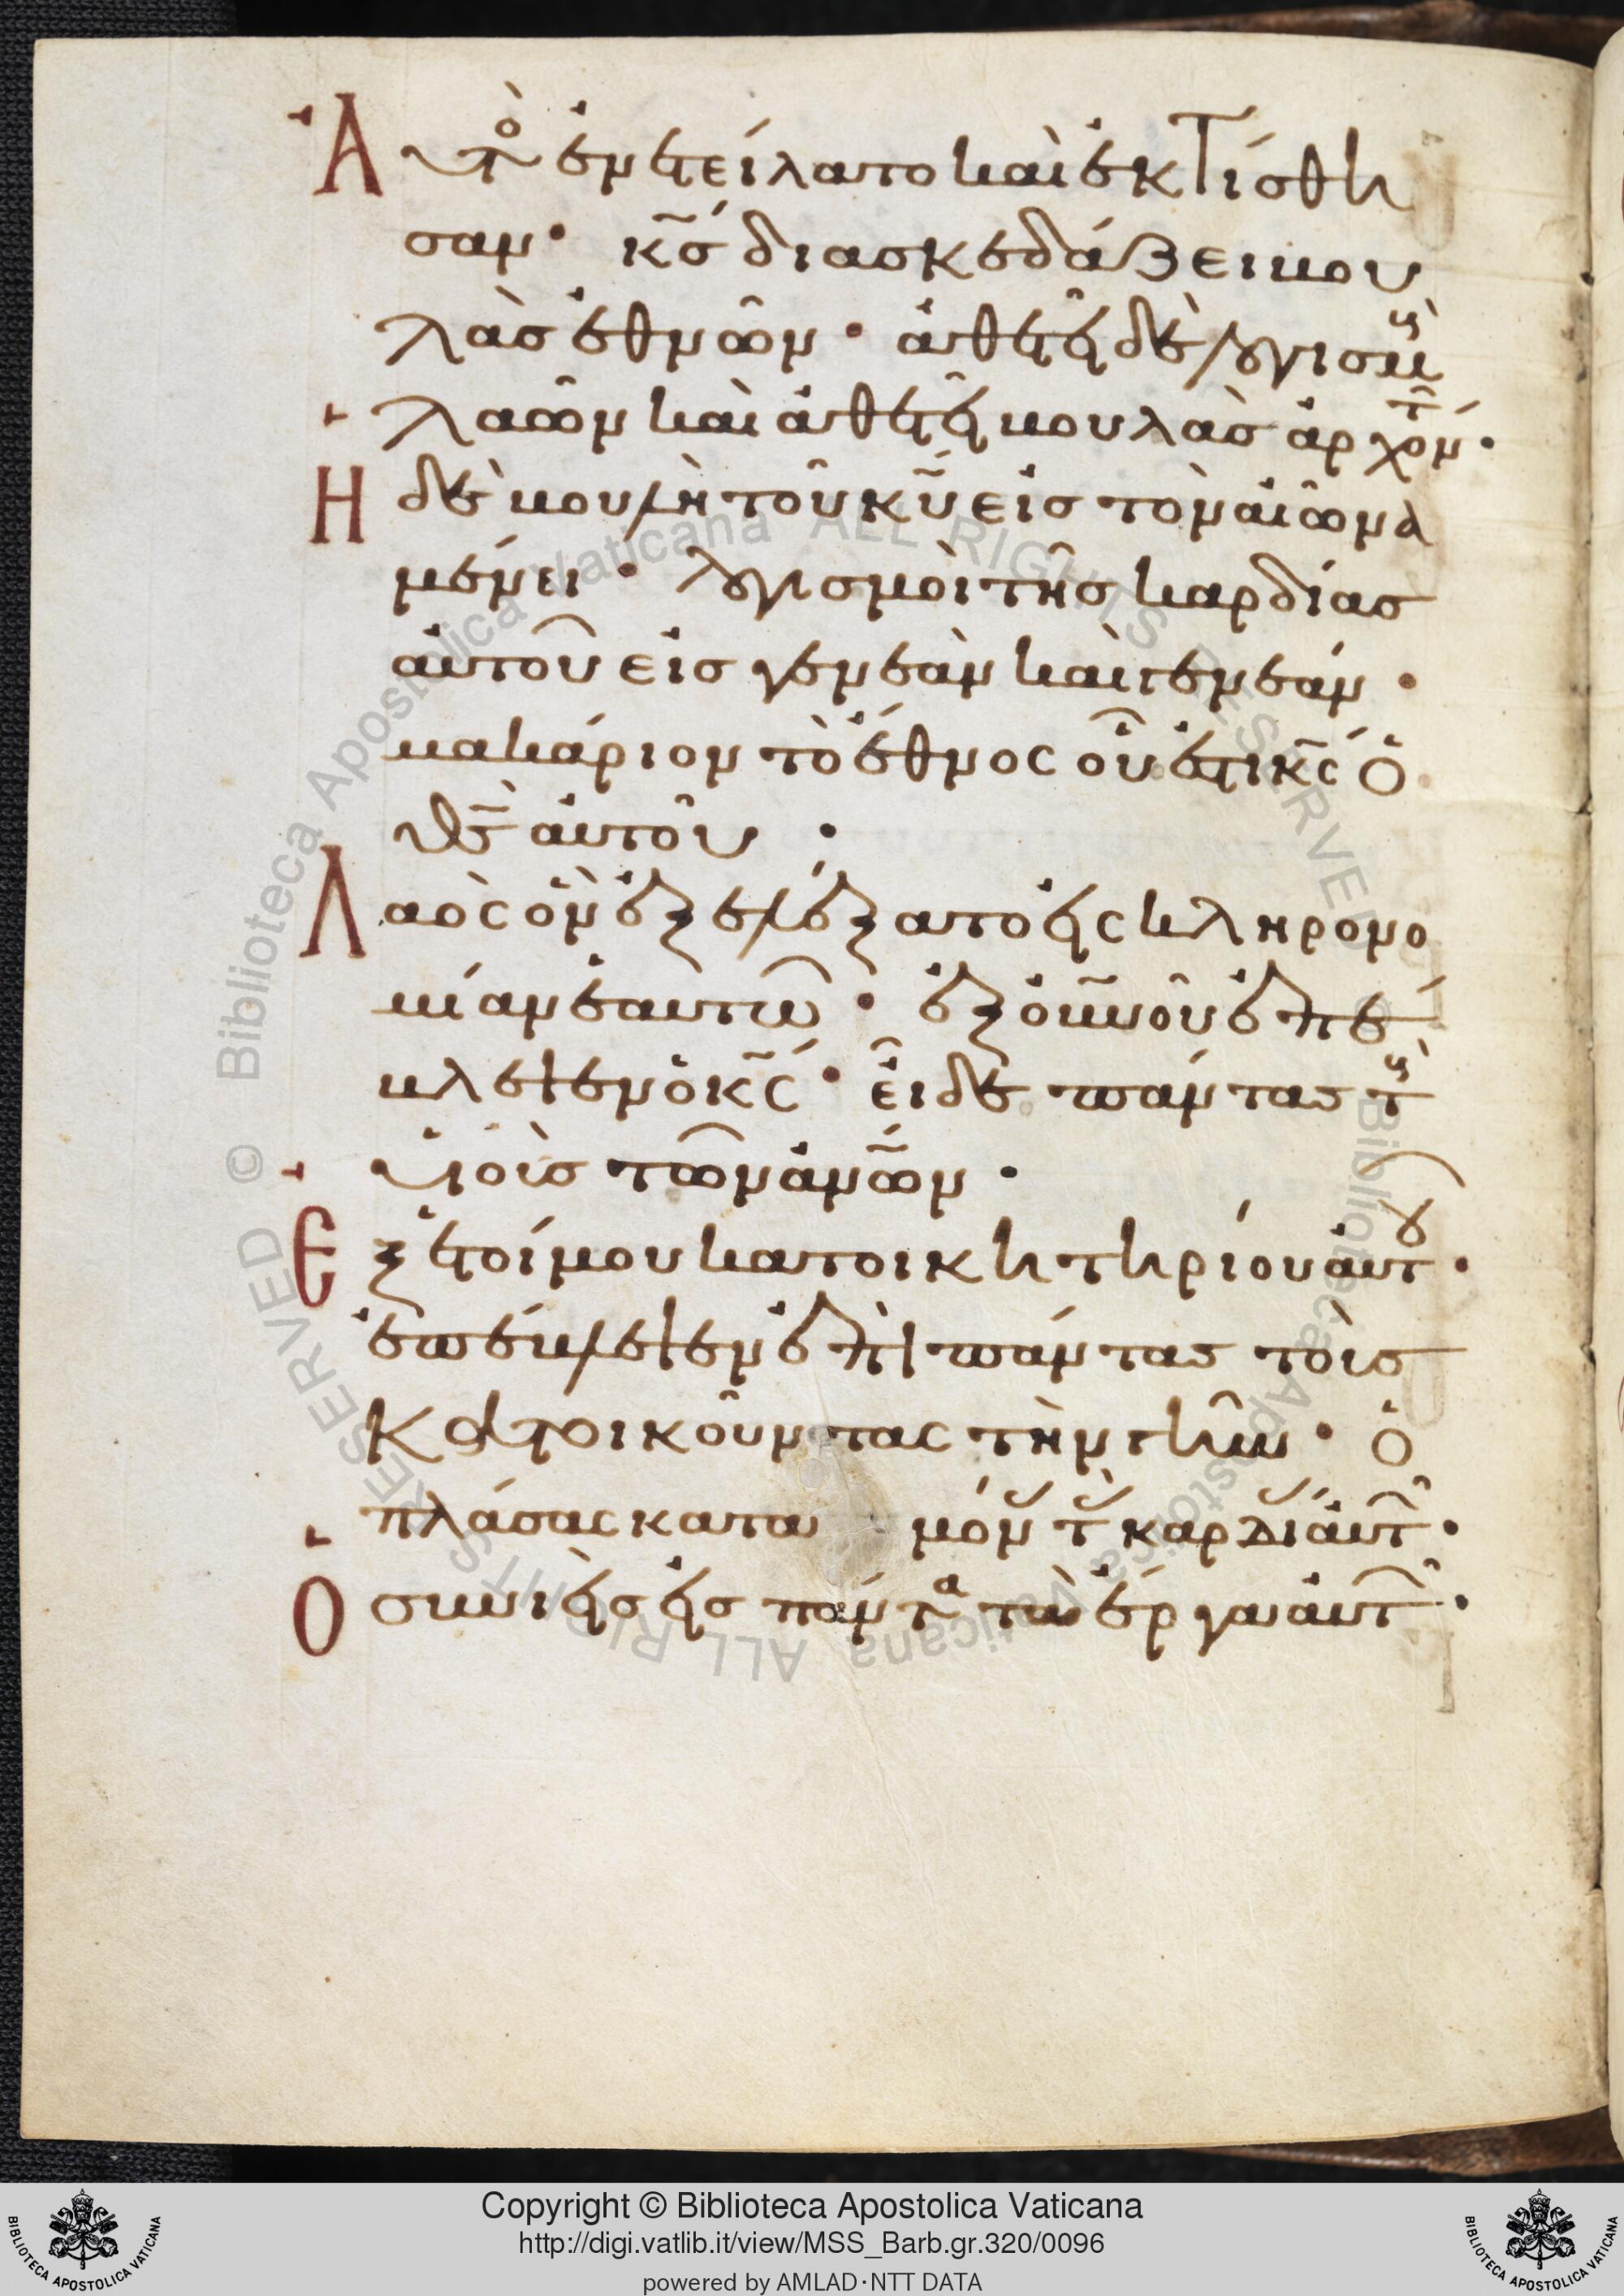 Αὐτὸ(ς) ἐνετείλατο καὶ ἐκτίσθη
σαν· κ̅ς̅ διασκεδάζει βου
λὰς ἐθνῶν· ἀθετεῖ δὲ λογισμοὺς
λαῶν καὶ ἀθετεῖ βουλὰς ἀρχόντ·
Ἡ δὲ βουλὴ τοῦ κ̅υ̅ εἰς τὸν αἰῶνα
μένει· λογισμοὶ τῆς καρδίας
αὐτοῦ εἰς γενεὰν καὶ γενεάν·
μακάριον τὸ ἔθνος οὗ ἐστι κ̅ς̅ ὁ
θ̅ς̅ αὐτοῦ·
Λαὸς ὃν ἐξελέξατο εἰς κληρονο
μίαν ἑαυτῶ· ἐξ ο̅υ̅ν̅ο̅υ̅ ἐπέ
βλεψεν ὁ κ̅ς̅· εἶδε πάντας τοὺς
υἱοὺς τῶν α̅ν̅ω̅ν̅·
Ἐξ ἑτοίμου κατοικητηρίου αὐτοῦ·
ἐπέβλεψεν ἐπὶ πάντας τοὺς
κατοικοῦντας τὴν γῆν· ὁ
πλάσας κατὰ μόν τ καρδί αὐτ·
Ὁ συνιεὶς εἰς πάντα τὰ ἔργα αὐτ·
© Biblioteca Apostolica Vaticana ALL RIGHTS RESERVED
© Biblioteca Apostolica Vaticana ALL RIGHTS RESERVED
Copyright © Biblioteca Apostolica Vaticana
http://digi.vatlib.it/view/MSS_Barb.gr.320/0096
powered by AMLAD·NTT DATA
BIBLIOTECA APOSTOLICA VATICANA
BIBLIOTECA APOSTOLICA VATICANA